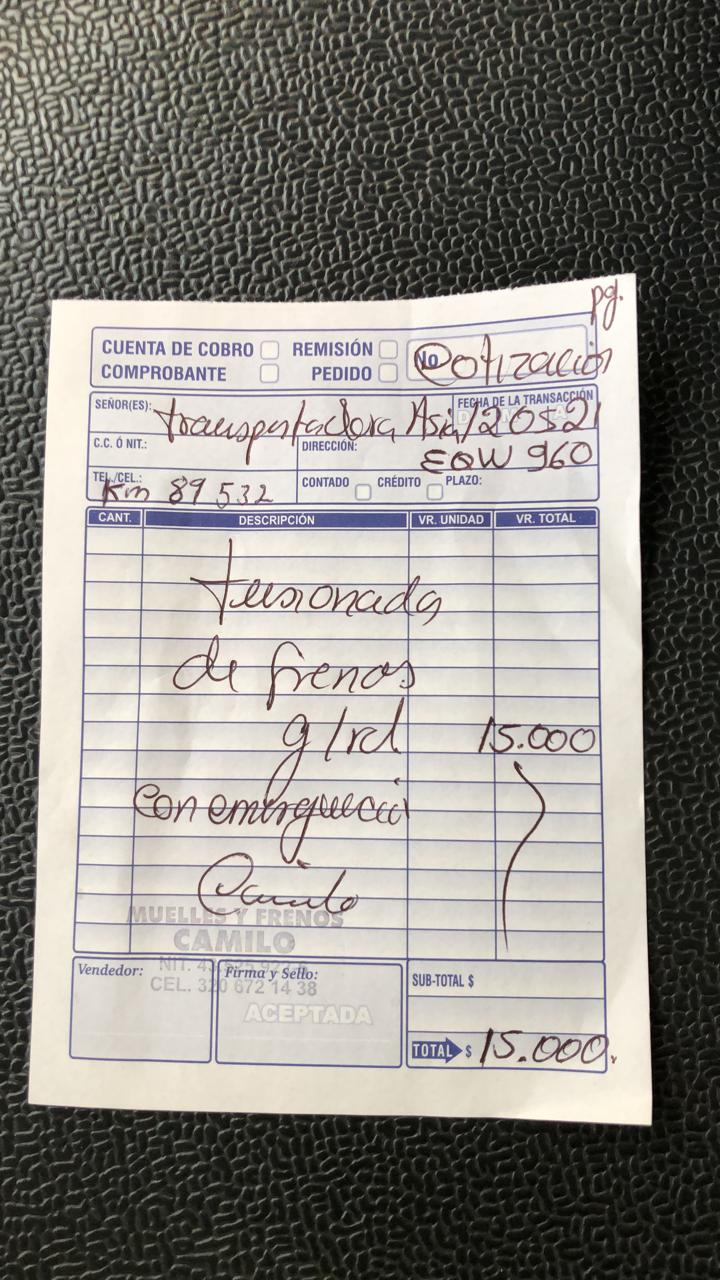 pg.
CUENTA DE COBRO REMISIÓN No Cotización
COMPROBANTE PEDIDO
SEÑOR(ES): transportadora Asia FECHA DE LA TRANSACCIÓN
20521
C.C. Ó NIT.: DIRECCIÓN: EQW 960
TEL./CEL.: Km 89532 CONTADO CRÉDITO PLAZO:
CANT. DESCRIPCIÓN VR. UNIDAD VR. TOTAL
tensionada
de frenos
g/rd 15.000
con emerguecia
Camilo
MUELLES Y FRENOS
CAMILO
NIT.
CEL. 320 672 14 38
Vendedor: Firma y Sello: SUB-TOTAL $
ACEPTADA
TOTAL $ 15.000